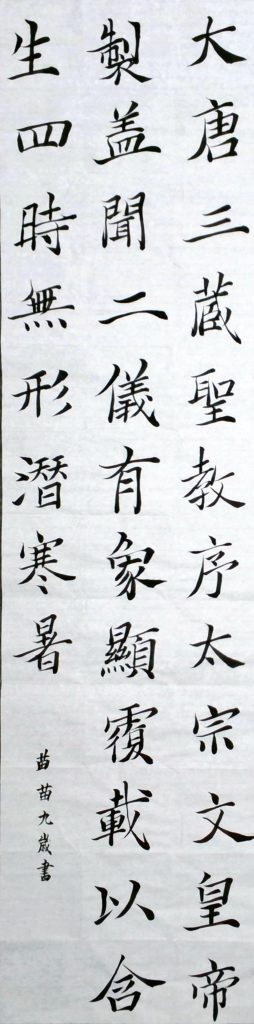 大唐三蔵聖教序太宗文皇帝
製盖聞二儀有象顯覆載以含
生四時無形潛寒暑
苗苗九歳書